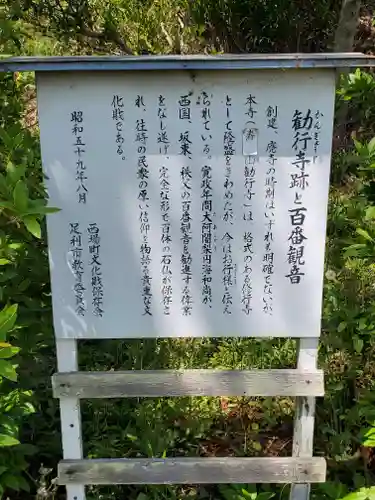 勧行寺跡と百番観音
かんぎょうじ
創建、廃寺の時期はいずれも明確でないが、
本寺(山勧行寺)は、格式のある修行寺
として隆盛をきわめたが、今はお行様と伝え
られている。寛政年間大阿闍梨円海和尚が、
西国、坂東、秩父の百番観音を勧進する偉業
をなし遂げ、完全な形で百体の石仏が保存さ
れ、往時の民衆の原い信仰を物語る貴重な文
化財である。
昭和五十九年八月
西場町文化財保存会
足利市教育委員会